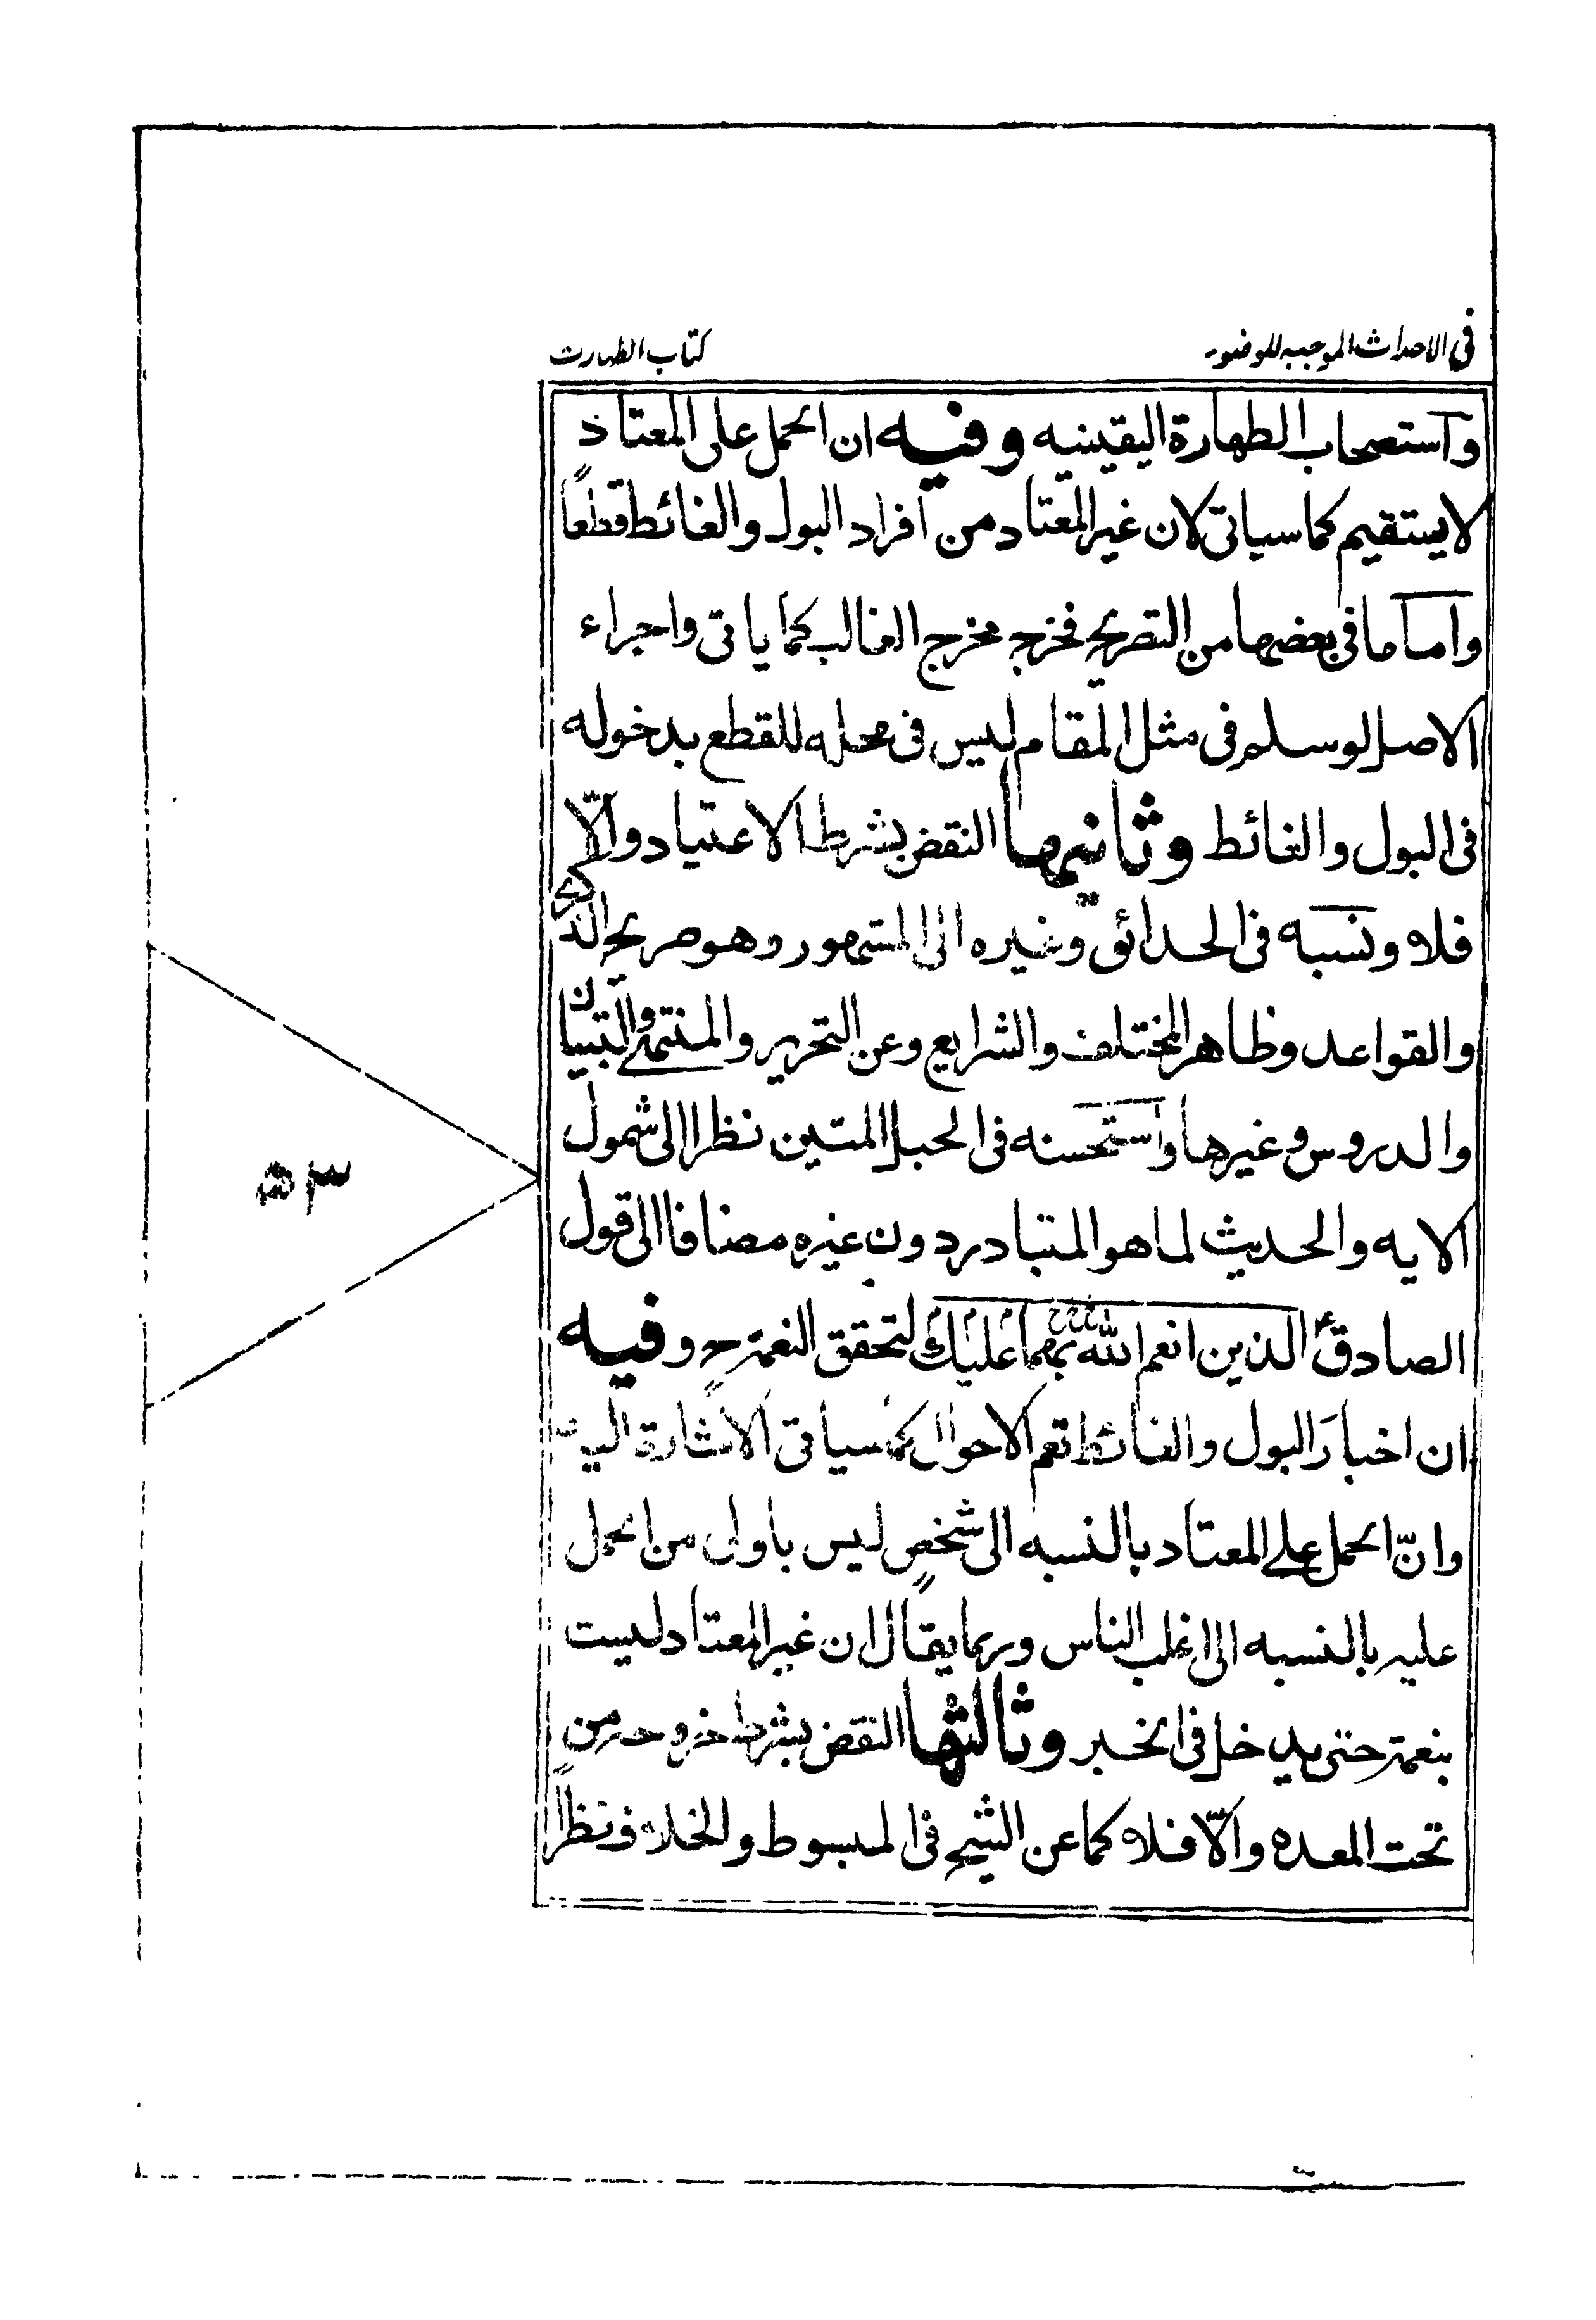 في الاحداث الموجبه للوضوء
كتاب الطهارت
واستصحاب الطهارة اليقينيه وفيه ان الحمل على المعتاد
لا يستقيم كما سياتى لان غير المعتاد من افراد البول والغائط قطعاً
واما ما فى بعضها من التصريح فخرج مخرج الغالب كما ياتى واجراء
الاصل لو سلم فى مثل المقام ليس فى محله للقطع بدخوله
فى البول والغائط وثانيها النقض بشرط الاعتياد والّا
فلا ونسبه فى الحدائق وغيره الى المشهور وهو صريح الذكرى
والقواعد وظاهر المختلف والشرايع وعن التحرير والمنتهى والتبيان
والدروس وغيرها واستحسنه فى الحبل المتين نظرا الى شمول
الايه والحديث لما هو المتبادر دون غيره مضافا الى قول
الصادق ع الذين انعم الله بهما عليك لتحقق النعمة ح وفيه
ان اخبار البول والغائط تعم الاحوال كما سياتى الاشارة اليه
وانّ الحمل على المعتاد بالنسبه الى شخص ليس باولى من الحمل
عليه بالنسبه الى اغلب الناس وربما يقال ان غير المعتاد ليست
بنعمة حتى يدخل فى الخبر وثالثها النقض بشرط خروجه من
تحت المعده والّا فلا كما عن الشيخ فى المبسوط والخلاف ونظراً